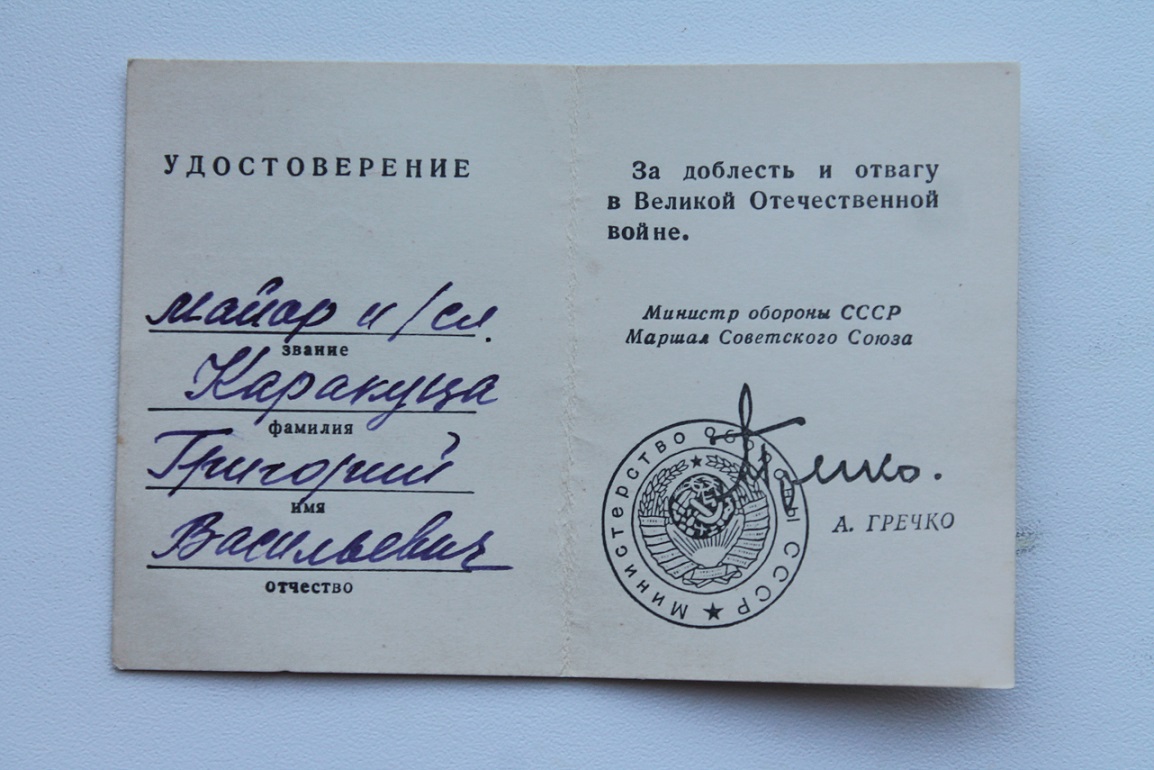 УДОСТОВЕРЕНИЕ
майор и/сл.
звание
Каракуца
фамилия
Григорий
имя
Васильевич
отчество
За доблесть и отвагу
в Великой Отечественной
войне.
Министр обороны СССР
Маршал Советского Союза
Гречко.
А. ГРЕЧКО
Министерство Обороны СССР